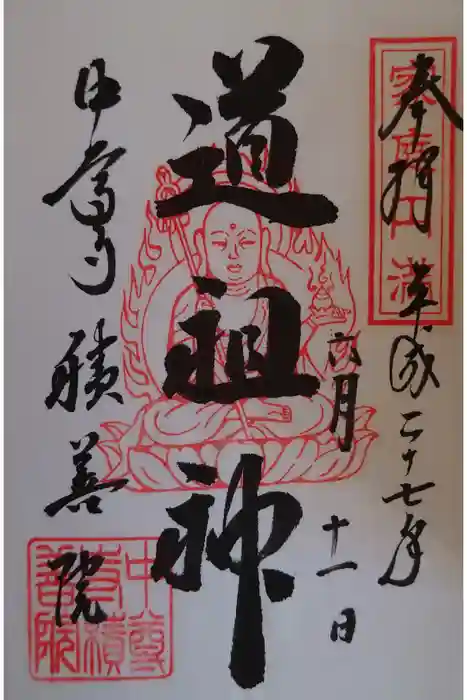 奉拝
平成二十七年
六月
十一日
道祖神
中尊寺
積善院
中尊
寺積
善院